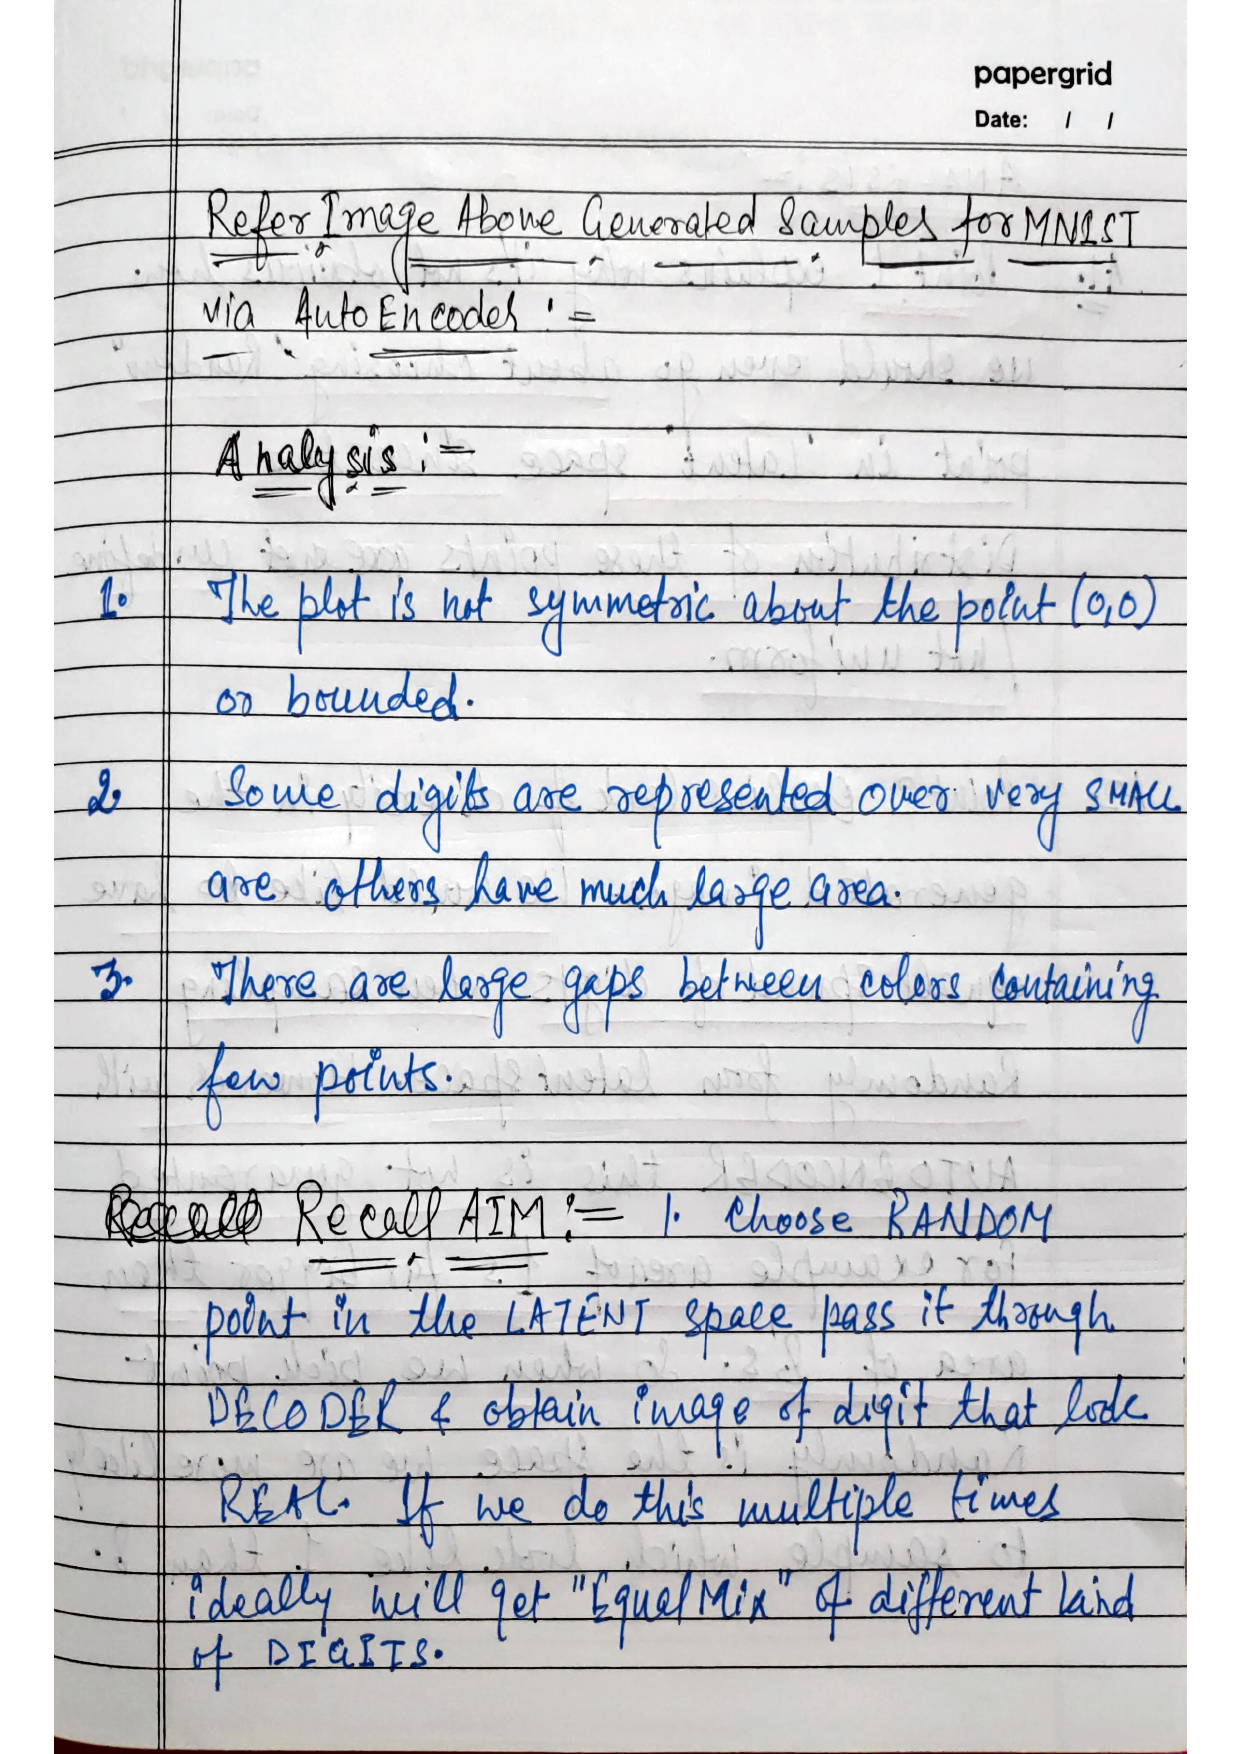 papergrid
Date: / /
Refer Image Above Generated Samples for MNIST
via AutoEncoder :=
Analysis :=
1. The plot is not symmetric about the point (0,0)
or bounded.
2. Some digits are represented over very SMALL
are others have much large area.
3. There are large gaps between colors containing
few points.
Recall Recall AIM := 1. Choose RANDOM
point in the LATENT space pass it through
DECODER & obtain image of digit that look
REAL. If we do this multiple times
ideally will get "Equal Mix" of different kind
of DIGITS.